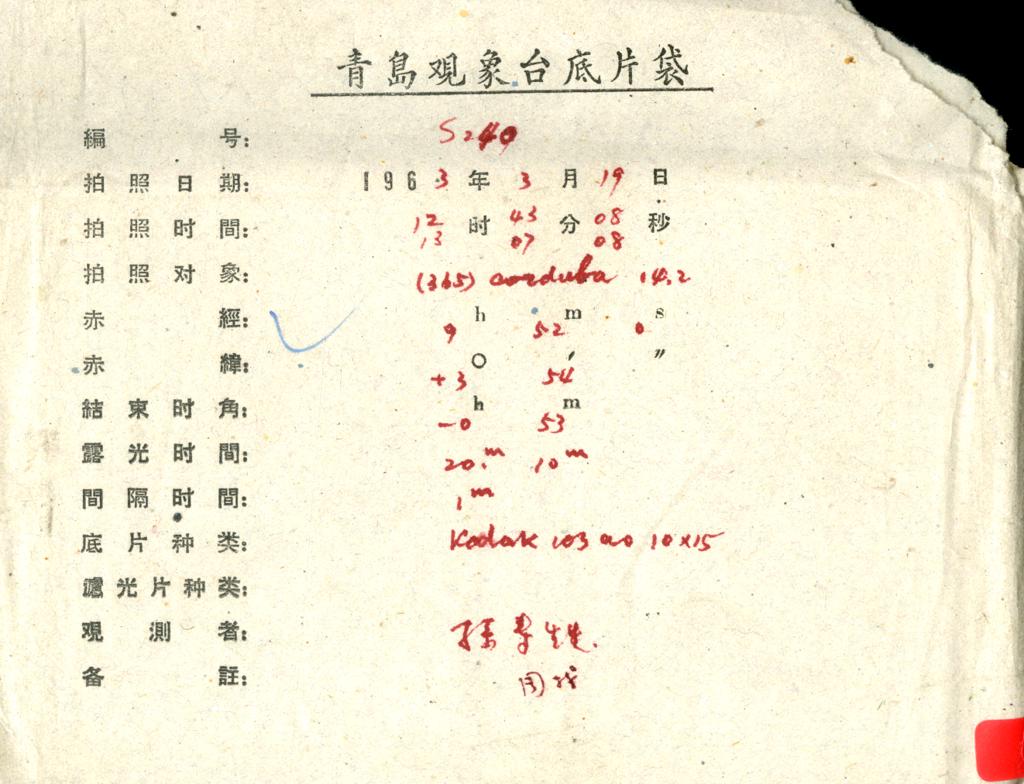 青島观象台底片袋
編号: S240
拍照日期: 1963年3月19日
拍照时間: 12时43分08秒
13 07 08
拍照对象: (365) corduba 14.2
赤經: 9h 52m 0s
赤緯: +3° 54′ ″
結束时角: -0h 53m
露光时間: 20.m 10m
間隔时間: 1m
底片种类: Kodak 103 ao 10×15
濾光片种类:
观測者: 孫寿
备註: